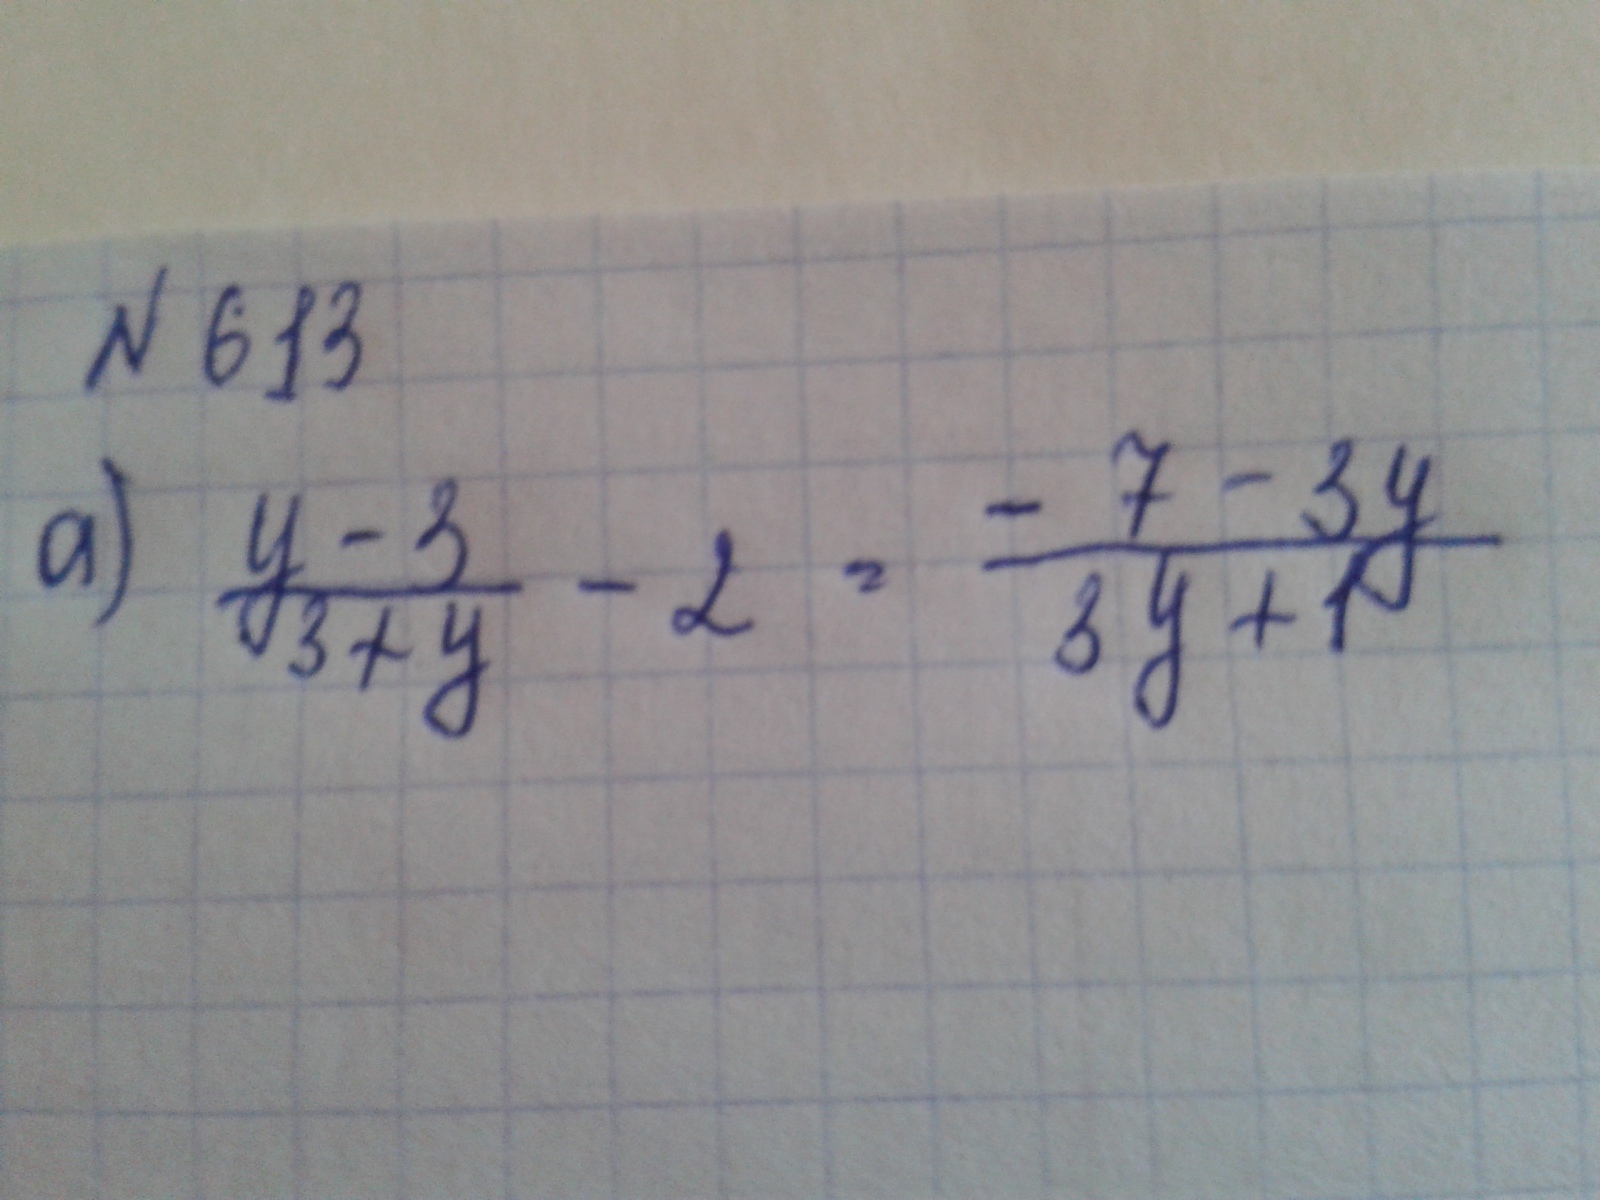 N 613
а) \frac{y - 3}{3 + y} - 2 = \frac{- 7 - 3y}{3y + 1}